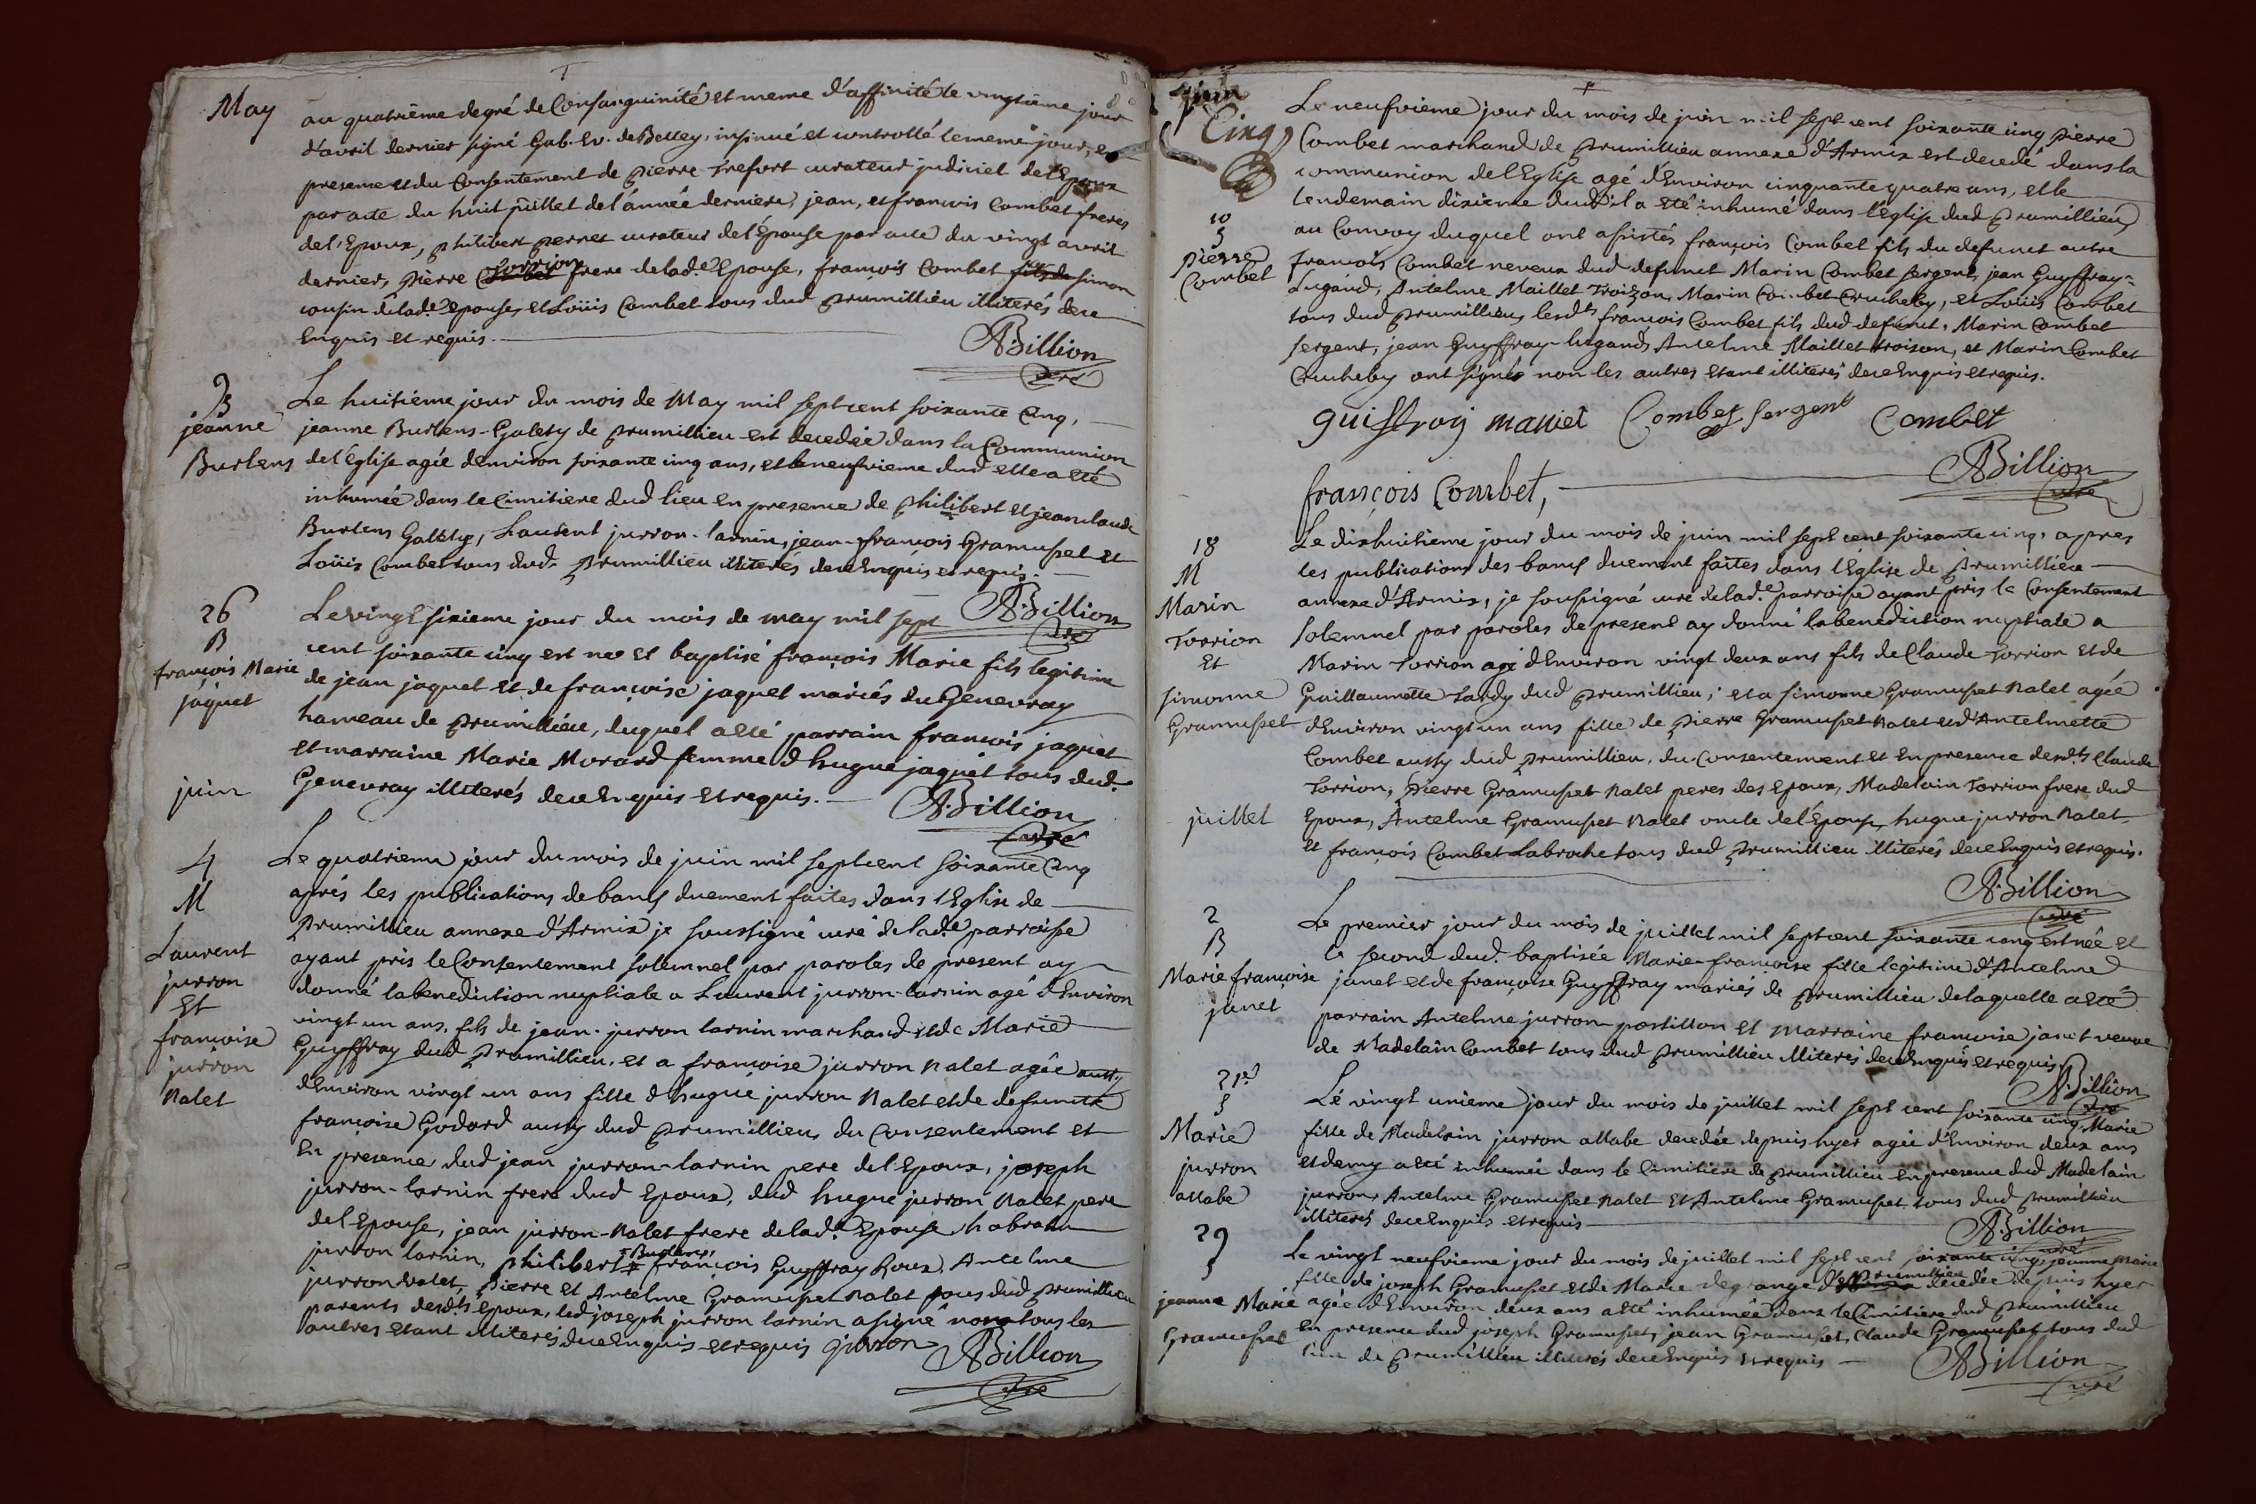 May
au quatrième degré de Consanguinité et meme d'affinité le vingtième jour
d'avril dernier signé Gab. Ev. de Belley, insinué et controllé le meme jour, en
presence et du Consentement de pierre trefort curateur judiciel de l'Epoux
par acte du huit juillet de l'année derniere, jean, et francois Combet freres
de l'Epoux, philibert perret curateur de l'Epouse par acte du vingt avril
dernier, pierre torrion frere de lad.e Epouse, francois Combet simon
cousin de lad.e epouse, et Loüis Combet tous dud prumillieu illiterés de ce
Enquis et requis.
A. Billion
curé
9
jeanne
Burlens
Le huitiéme jour du mois de May mil sept cent soixante Cinq,
jeanne Burlens-Galety de prumillieu est decedée dans la Communion
de l'église agée d'environ soixante cinq ans, et le neufvieme dud elle a eté
inhumée dans le Cimitiere dud lieu en presence de philibert et jean claude
Burlens Galety, Laurent jurron-larnin, jean-francois Gramusset et
Loüis Combet tous dud. prumillieu illiterés de ce Enquis et requis.
A. Billion
curé
26
B
françois Marie
jaquet
Le vingt sixieme jour du mois de may mil sept
cent soixante cinq est né et baptisé françois Marie fils legitime
de jean jaquet et de françoise jaquet mariés du Genevray
hameau de prumillieu, duquel a eté parrain francois jaquet
et marraine Marie Morard femme d'hugue jaquet tous dud.
Genevray illiterés de ce enquis et requis.
A. Billion
curé
juin
4
M
Laurent
jurron
Et
françoise
jurron
Nalet
Le quatrieme jour du mois de juin mil sept cent soixante Cinq
aprés les publications de bancs duement faites dans l'Eglise de
prumillieu annexe d'Armix je soussigné curé de lad.e parroisse
ayant pris le Consentement solemnel par paroles de present ay
donné la benediction nuptiale a Laurent jurron-larnin agé d'Environ
vingt un ans, fils de jean-jurron larnin marchand et de Marie
Guyffray dud prumillieu, et a françoise jurron Nalet agée aussy
d'Environ vingt un ans fille d'hugue jurron Nalet et de defuncte
françoise Godard aussy dud prumillieu, du Consentement et
En presence dud jean jurron-larnin pere de l'Epoux, joseph
jurron-larnin frere dud Epoux, dud hugue jurron Nalet pere
de l'Epouse, jean jurron-Nalet frere de lad.e Epouse, habraham
jurron larnin, philibert Burlens, françois Guyffray Roux, Antelme
jurron Nalet, Pierre et Antelme Gramusset Nalet tous dud prumillieu
parents desdts Epoux, led joseph jurron larnin a signé non tous les
autres etant illiterés de ce Enquis et requis jurron
A. Billion
curé
juin
Cinq
10
S
pierre
Combet
Le neufvieme jour du mois de juin mil sept cent soixante cinq pierre
Combet marchand de prumillieu annexe d'Armix est decedé dans la
communion de l'Eglise agé d'Environ cinquante quatre ans, et le
lendemain dixieme dud il a eté inhumé dans l'Eglise dud prumillieu
au Convoy duquel ont assistés françois Combet fils du defunct autre
francois Combet neveux dud defunct Marin Combet sergent, jean Guyffray-
Lugand, Antelme Maillet troizon, Marin Combet Crucheby, et Loüis Combet
tous dud prumillieu, lesdts francois Combet fils dud defunct, Marin Combet
sergent, jean Guyffray-lugand, Antelme Maillet troison, et Marin Combet
Crucheby ont signés non les autres etant illiterés de ce Enquis et requis.
guiffray maillet Combet sergent Combet
A Billion
curé
françois Combet,
18
M
Marin
Torrion
Et
simonne
Gramusset
Le dixhuitieme jour du mois de juin mil sept cent soixante cinq, apres
les publications des bancs duement faites dans l'Église de prumillieu
annexe d'Armix, je soussigné curé de lad.e parroisse ayant pris le Consentement
solemnel par paroles de present ay donné la benediction nuptiale a
Marin torrion agé d'Environ vingt deux ans fils de Claude torrion et de
Guillaumette tardy dud prumillieu, et a simonne Gramusset Nalet agée
d'Environ vingt un ans fille de pierre Gramusset Nalet et d'Antelmette
Combet aussy dud prumillieu, du Consentement et En presence desdts Claude
torrion, pierre Gramusset Nalet peres des Epoux, Madelain torrion frere dud
Epoux, Antelme Gramusset Nalet oncle de l'Epouse, hugue jurron Nalet
et françois Combet Labroche tous dud prumillieu illiterés de ce Enquis et requis.
A. Billion
curé
juillet
2
B
Marie françoise
janet
Le premier jour du mois de juillet mil sept cent soixante cinq est née et
le second dud. baptisée Marie-françoise fille legitime d'Antelme
janet et de françoise Guyffray mariés de prumillieu de laquelle a eté
parrain Antelme jurron-postillon et marraine françoise janet veuve
de Madelain Combet tous dud prumillieu illiterés de ce Enquis et requis
A. Billion
curé
21e
S
Marie
jurron
allabe
Le vingt unieme jour du mois de juillet mil sept cent soixante cinq Marie
fille de Madelain jurron allabe decedée depuis hyer agée d'Environ deux ans
et demy a eté inhumée dans le Cimitiere de prumillieu en presence dud Madelain
jurron, Antelme Gramusset Nalet et Antelme Gramusset tous dud prumillieu
illiterés de ce Enquis et requis
A. Billion
curé
29
S
jeanne Marie
Gramusset
Le vingt neufvieme jour du mois de juillet mil sept cent soixante cinq jeanne marie
fille de joseph Gramusset et de Marie degrange de prumillieu decedée depuis hyer
agée d'Environ deux ans a eté inhumée dans le Cimitiere dud prumillieu
en presence dud joseph Gramusset, jean Gramusset, Claude Gramusset tous dud
lieu de prumillieu illiterés de ce Enquis et requis
A Billion
curé